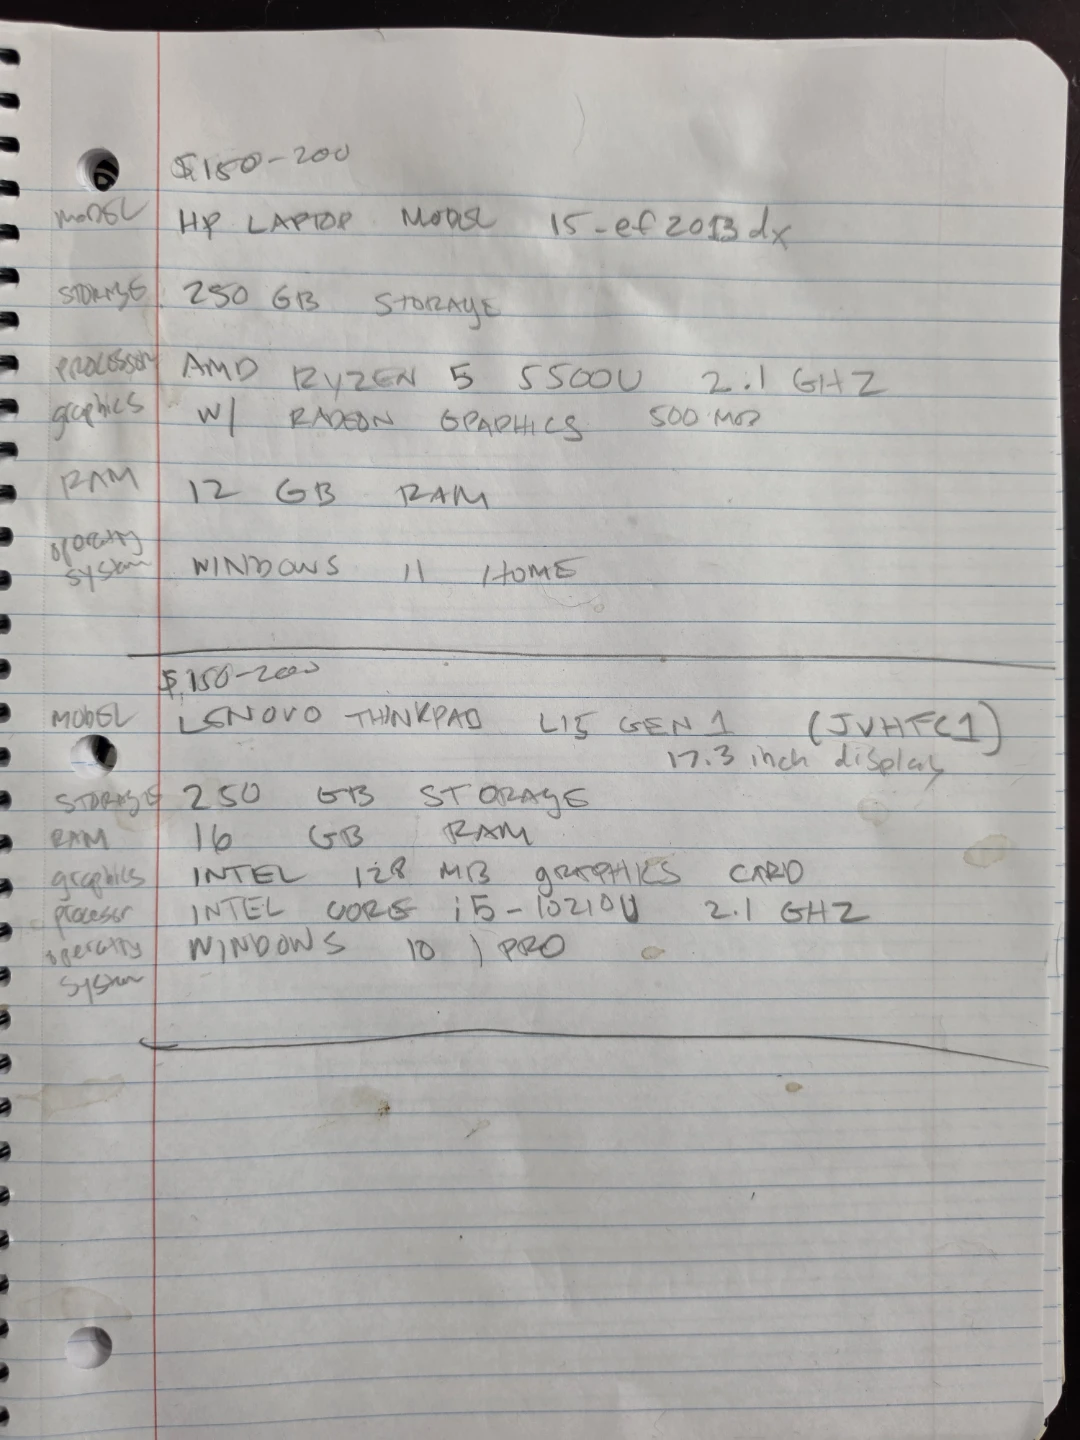 $150-200
MODEL HP LAPTOP MODEL 15-ef2013dx
STORAGE 250 GB STORAGE
PROCESSOR AMD RYZEN 5 5500U 2.1 GHZ
graphics W/ RADEON GRAPHICS 500
RAM 12 GB RAM
operating
system WINDOWS 11 HOME
$150-200
MODEL LENOVO THINKPAD L15 GEN 1 (JVHFC1)
17.3 inch display
STORAGE 250 GB STORAGE
RAM 16 GB RAM
graphics INTEL 128 MB GRAPHICS CARD
processor INTEL CORE i5-10210U 2.1 GHZ
operating WINDOWS 10 PRO
system